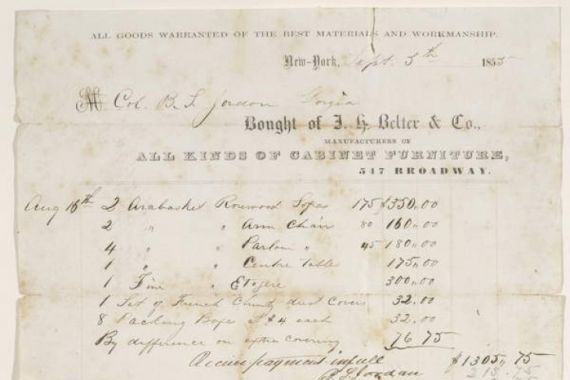 ALL GOODS WARRANTED OF THE BEST MATERIALS AND WORKMANSHIP.
New-York, Sept. 5th 1855
M Col. B. L. Jordan Gorgia
Bought of J. H. Belter & Co.,
MANUFACTURERS OF
ALL KINDS OF CABINET FURNITURE,
547 BROADWAY.
Aug 16th 2 Arabasket Rosewood Sofas 175 $350,00
2 " " Arm Chair 80 160,00
4 " " Parlor " 45 180,00
1 " " Centre Table 175,00
1 Fine " Etegere 300,00
1 Set of French dust Covers 32,00
8 Packing Boxes $4 each 32,00
By difference on extra covering 76 75
payment in full $1305,75
B L Jordan